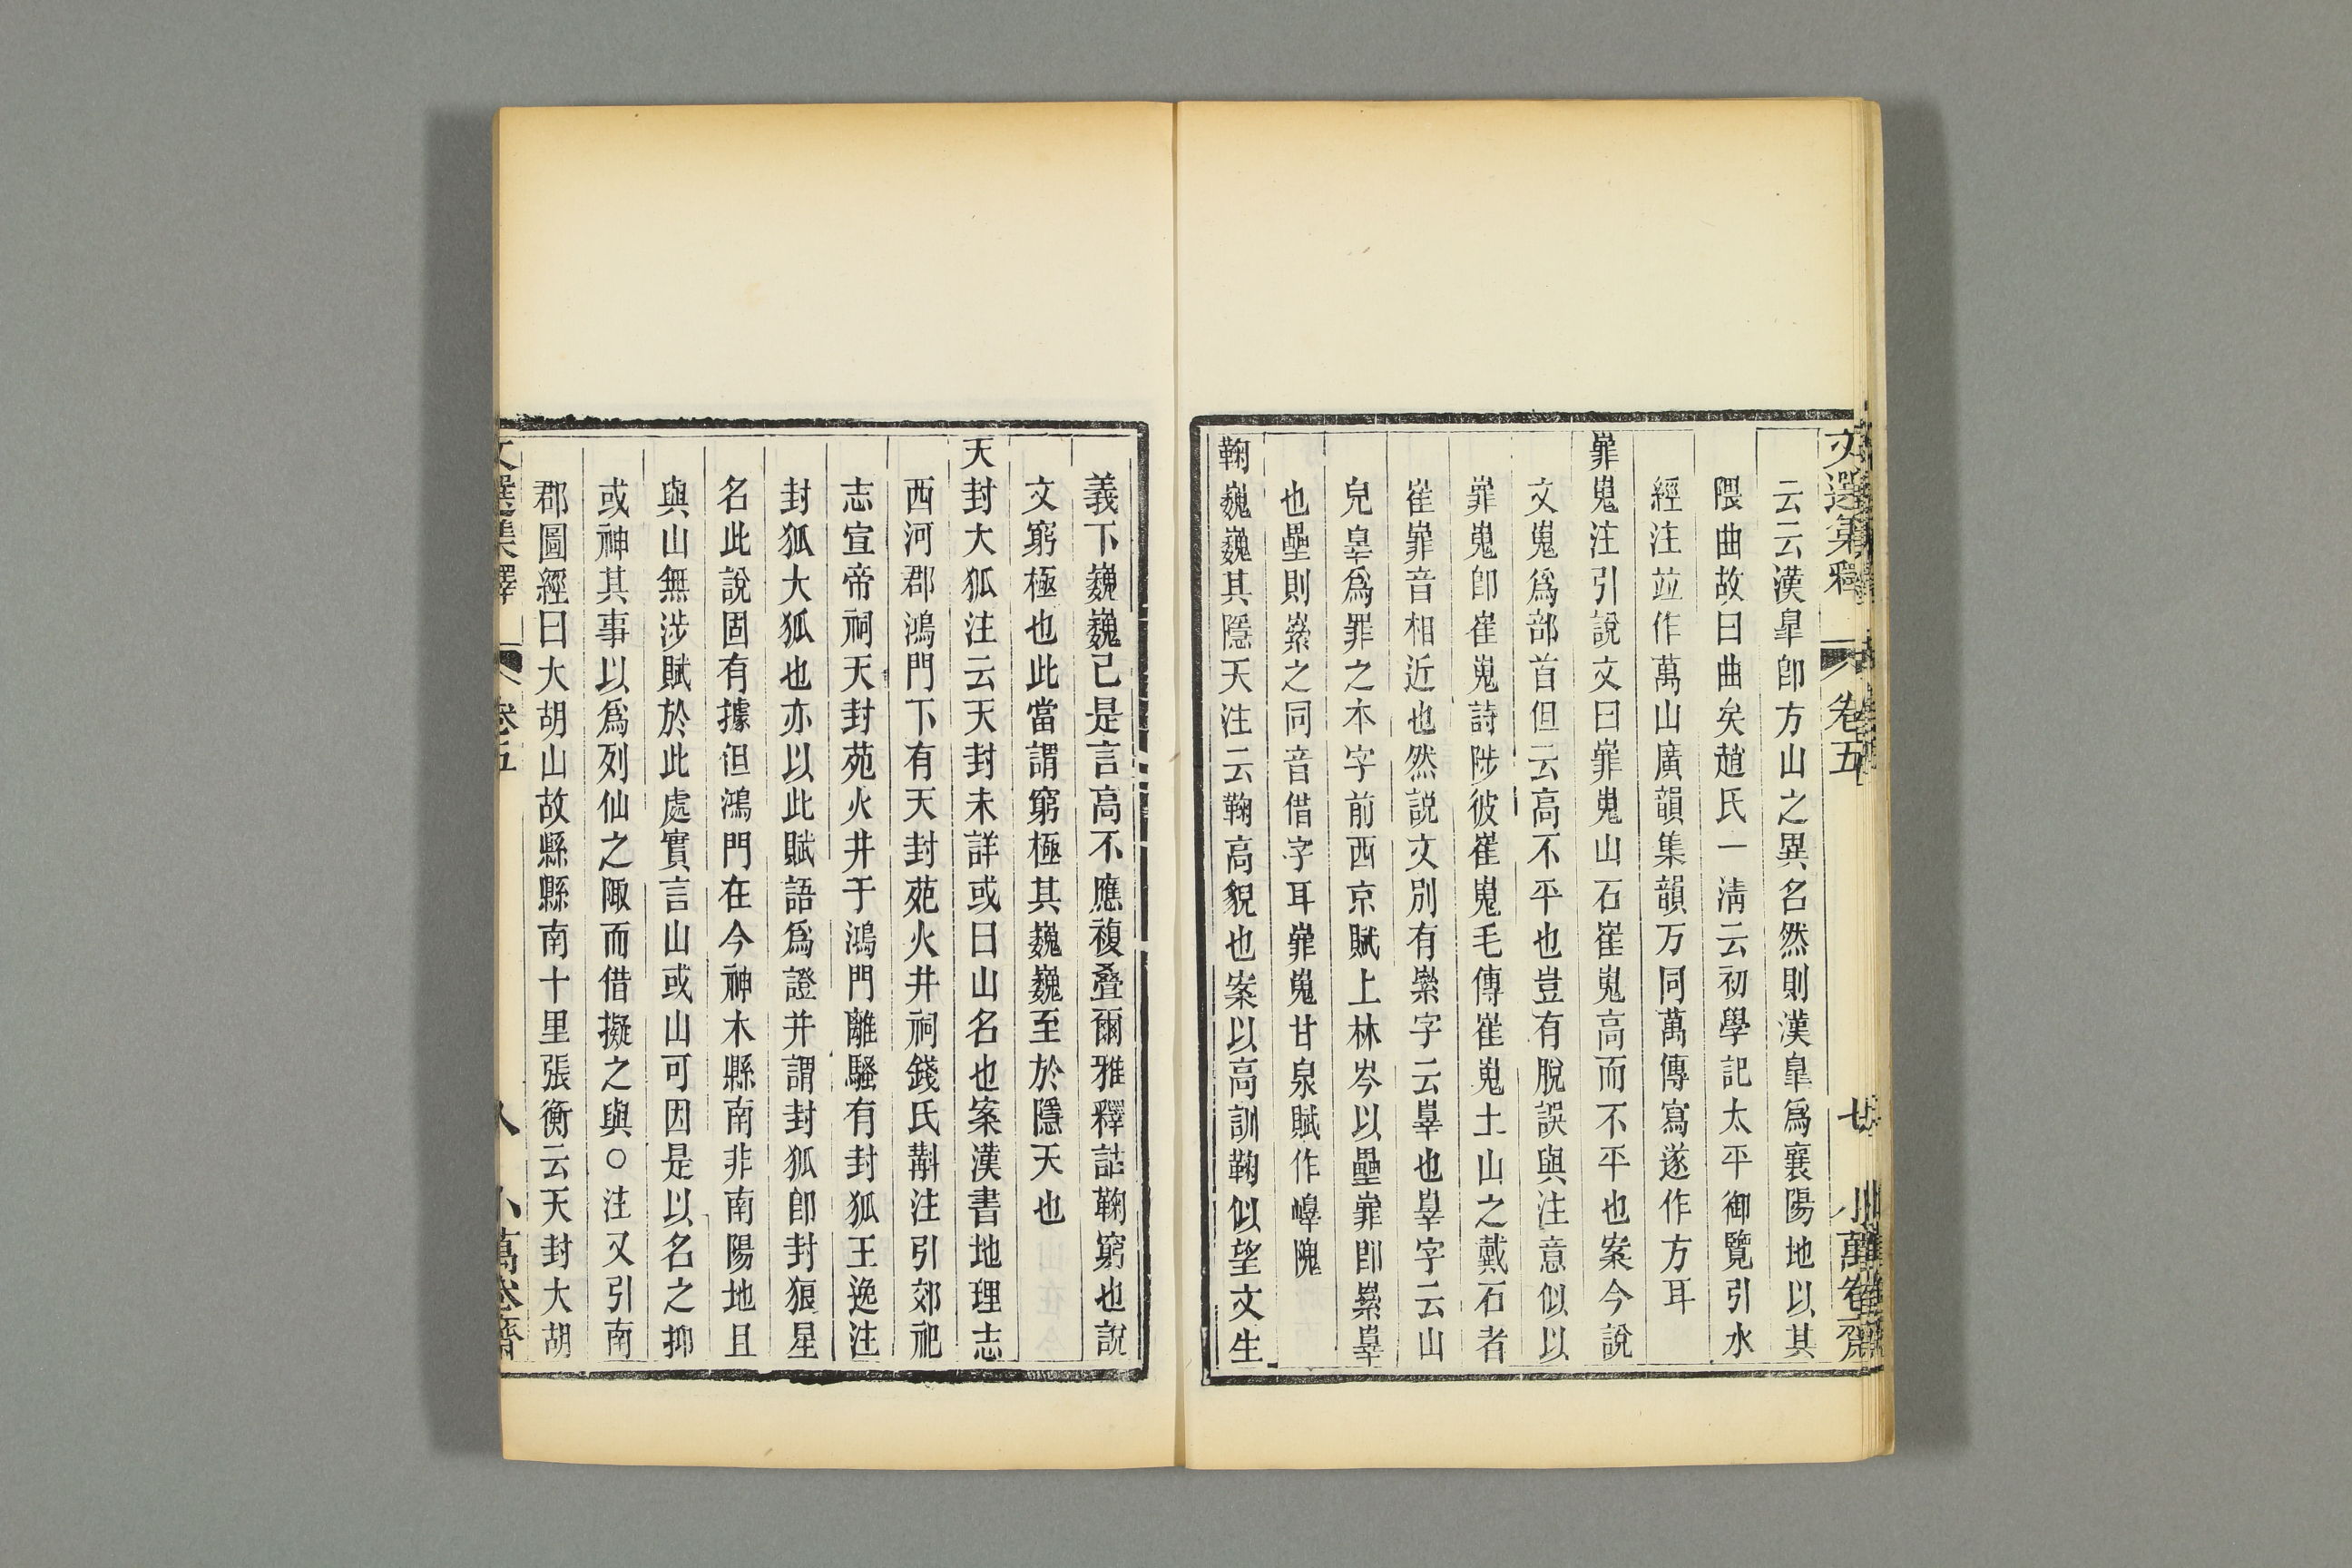 文選集釋 卷五 七 小萬卷齋
云云漢臯卽方山之異名然則漢臯爲襄陽地以其
隈曲故曰曲矣趙氏一淸云初學記太平御覽引水
經注竝作萬山廣韻集韻万同萬傳寫遂作方耳
嶵嵬注引說文曰嶵嵬山石崔嵬高而不平也案今說
文嵬爲部首但云高不平也豈有脫誤與注意似以
嶵嵬卽崔嵬詩陟彼崔嵬毛傳崔嵬土山之戴石者
崔嶵音相近也然說文別有㠑字云辠也辠字云山
皃辠爲罪之本字前西京賦上林岑以壘嶵卽㠑辠
也壘則㠑之同音借字耳嶵嵬甘泉賦作嶵隗
鞠巍巍其隱天注云鞠高貌也案以高訓鞠似望文生
義下巍巍已是言高不應複叠爾雅釋詁鞠窮也說
文窮極也此當謂窮極其巍巍至於隱天也
天封大狐注云天封未詳或曰山名也案漢書地理志
西河郡鴻門下有天封苑火井祠錢氏斠注引郊祀
志宣帝祠天封苑火井于鴻門離騷有封狐王逸注
封狐大狐也亦以此賦語爲證并謂封狐卽封狼星
名此說固有據但鴻門在今神木縣南非南陽地且
與山無涉賦於此處實言山或山可因是以名之抑
或神其事以爲列仙之陬而借擬之與○注又引南
郡圖經曰大胡山故縣縣南十里張衡云天封大胡
文選集釋 卷五 八 小萬卷齋